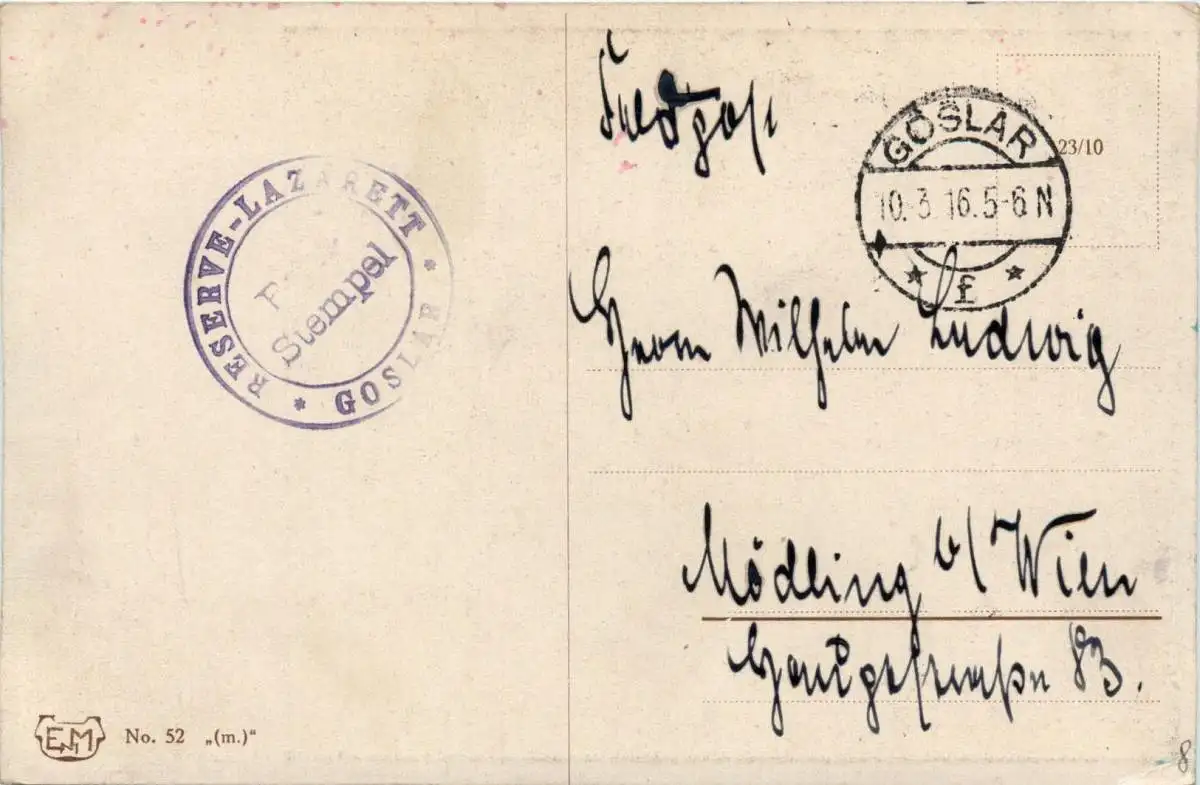 RESERVE-LAZARETT * GOSLAR *
Stempel
Feldpost
GOSLAR
10.3.16.5-6 N
* f *
23/10
Herrn Wilhelm Ludwig
Mödling b/ Wien
Hauptstraße 83.
No. 52 „(m.)“
8